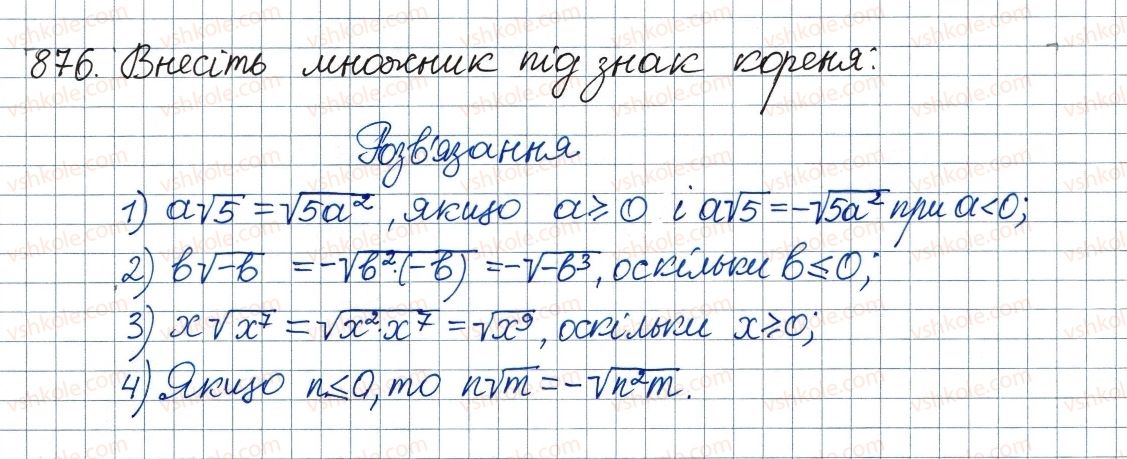 876. Внесіть множник під знак кореня:
Розв'язання
1) a√5 = √5a², якщо a ≥ 0 і a√5 = -√5a² при a < 0;
2) b√-b = -√b²·(-b) = -√-b³, оскільки b ≤ 0;
3) x√x⁷ = √x²·x⁷ = √x⁹, оскільки x ≥ 0;
4) Якщо n ≤ 0, то n√m = -√n²m.